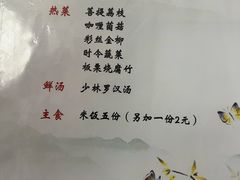 热菜 菩提荔枝
咖喱茵菇
彩丝金柳
时令蔬菜
板栗烧腐竹
鲜汤 少林罗汉汤
主食 米饭五份（另加一份2元）